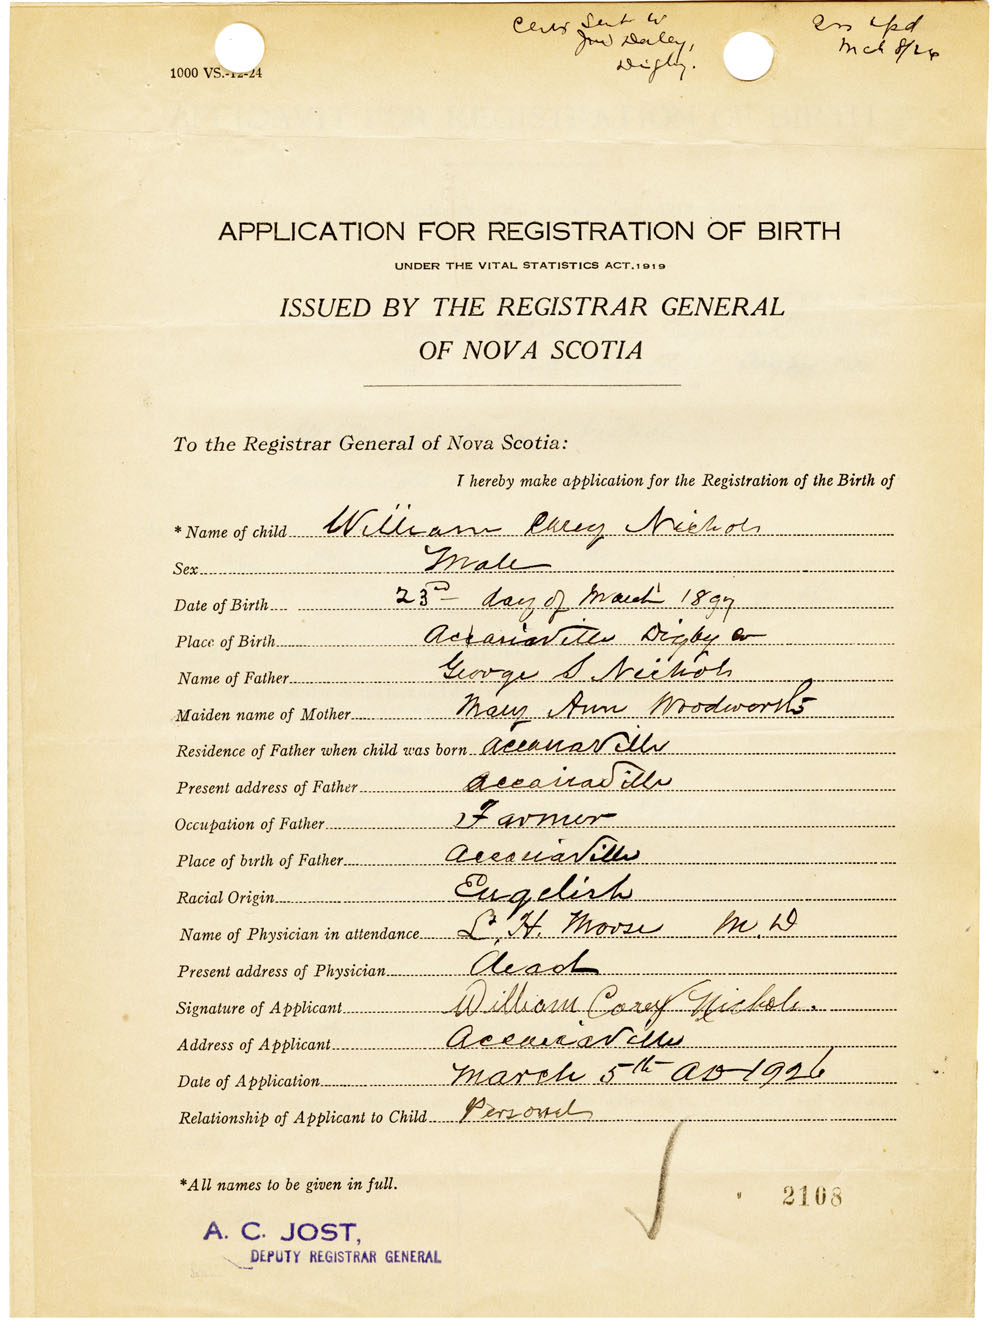 Cert Sent to
Jno Daley,
Digby.
pd
Mch 8/26
1000 VS.-12-24
APPLICATION FOR REGISTRATION OF BIRTH
UNDER THE VITAL STATISTICS ACT, 1919
ISSUED BY THE REGISTRAR GENERAL
OF NOVA SCOTIA
To the Registrar General of Nova Scotia:
I hereby make application for the Registration of the Birth of
*Name of child William Carey Nichols
Sex Male
Date of Birth 23rd day of March 1897
Place of Birth Acaciaville Digby Co
Name of Father George S Nichols
Maiden name of Mother Mary Ann Woodworth
Residence of Father when child was born Accaciaville
Present address of Father Accaciaville
Occupation of Father Farmer
Place of birth of Father Accaciaville
Racial Origin Engelish
Name of Physician in attendance L. H. Morse M. D
Present address of Physician dead
Signature of Applicant William Carey Nichols.
Address of Applicant Accaciaville
Date of Application March 5th AD 1926
Relationship of Applicant to Child Personel
*All names to be given in full.
2108
A. C. JOST,
DEPUTY REGISTRAR GENERAL